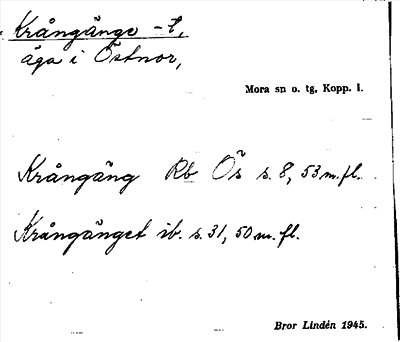 Krångänge -t,
äga i Östnor,
Mora sn o. tg, Kopp. l.
Krångäng Rb Ös s. 8, 53 m. fl.
Krångänget ib. s. 31, 50 m. fl.
Bror Lindén 1945.